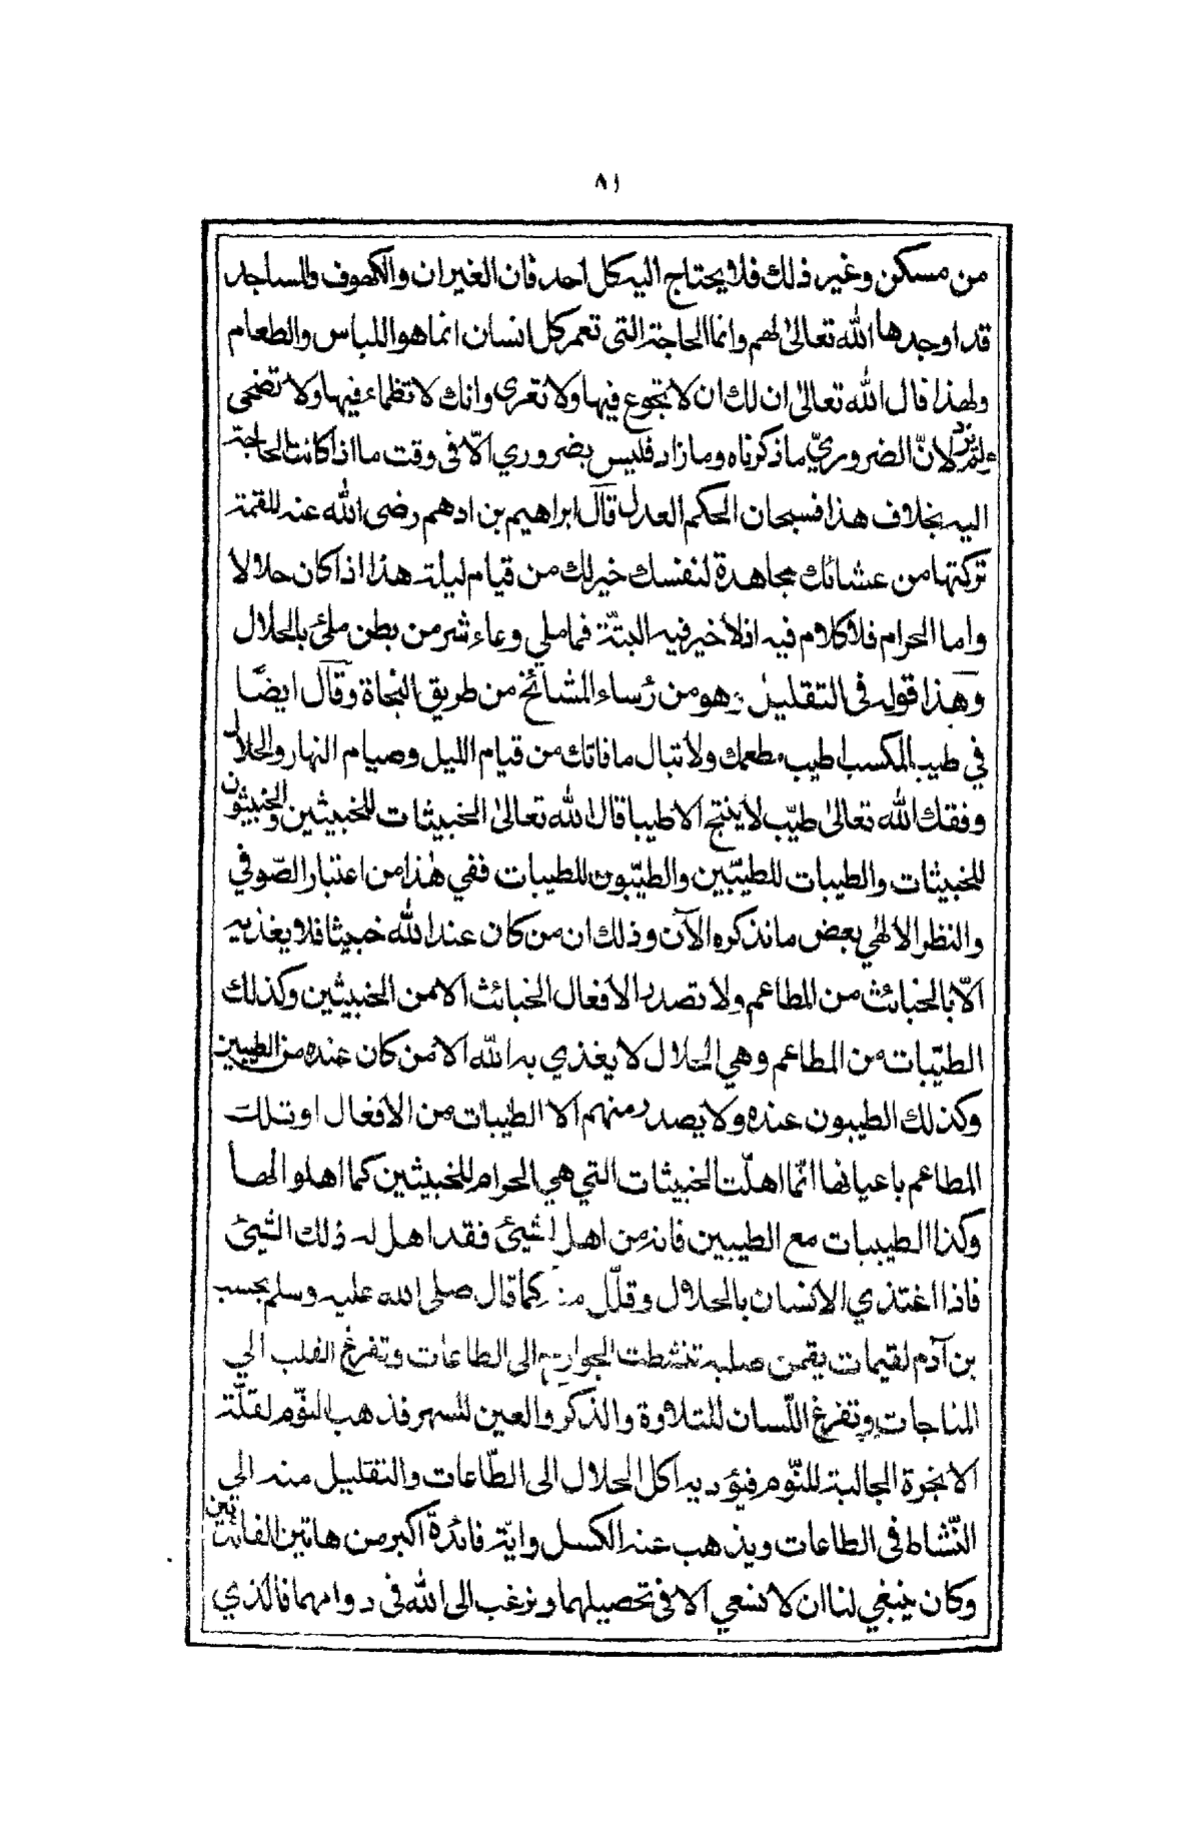 ٨١
من مسكن وغير ذلك فلا يحتاج اليه كل احد فان الغيران والكهوف والمساجد
قد اوجدها الله تعالى لهم وانما الحاجة التي تعم كل انسان انما هو اللباس والطعام
ولهذا قال الله تعالى ان لك ان لا تجوع فيها ولا تعرى وانك لا تظماء فيها ولا تضحى
لانّ الضروريّ ما ذكرناه وما زاد فليس بضروري الاّ في وقت ما اذا كانت الحاجة
اليه بخلاف هذا فسبحان الحكم العدل قال ابراهيم بن ادهم رضى الله عنه للقمة
تركتها من عشائك مجاهدة لنفسك خير لك من قيام ليلة هذا اذا كان حلالا
واما الحرام فلا كلام فيه اذ لا خير فيه البتّة فما ملي وعاء شر من بطن ملئ بالحلال
وهذا قوله في التقليل وهو من رُساء المشائخ من طريق النجاة وقال ايضًا
في طيب المكسب اطيب مطعمك ولا تبال ما فاتك من قيام الليل وصيام النهار والحلال
وفقك الله تعالى طيّب لا ينتج الا طيبا قال الله تعالى الخبيثات للخبيثين والخبيثون
للخبيثات والطيبات للطيّبين والطيّبون للطيبات ففي هذا من اعتبار الصّوفي
والنظر الالهي بعض ما نذكره الآن وذلك ان من كان عند الله خبيثا فلا يغذيه
الاّ بالخبائث من المطاعم ولا تصدر الافعال الخبائث الا من الخبيثين وكذلك
الطيّبات من المطاعم وهي الحلال لا يغذي به الله الا من كان عنده من الطيبين
وكذلك الطيبون عنده ولا يصدر منهم الا الطيبات من الافعال او تلك
المطاعم باعيانها انّما اهلّت الخبيثات التي هي الحرام للخبيثين كما اهلوا لها
وكذا الطيبات مع الطيبين فانه من اهل لشيئ فقد اهل له ذلك الشيئ
فاذا اغتذي الانسان بالحلال وقلّل منه كما قال صلى الله عليه وسلم بحسب
بن آدم لقيمات يقمن صلبه تنشطت الجوارح الى الطاعات وتفرغ القلب الي
المناجات وتفرغ اللّسان للتلاوة والذكر والعين للسهر فذهب النوّم لقلّة
الابخرة الجالبة للنّوم فيؤديه اكل الحلال الى الطّاعات والتقليل منه الى
النّشاط في الطاعات ويذهب عنه الكسل وايّة فائدة اكبر من هاتين الفائدتين
وكان ينبغي لنا ان لا نسعي الا في تحصيلهما ونرغب الى الله في دوامهما فالذي